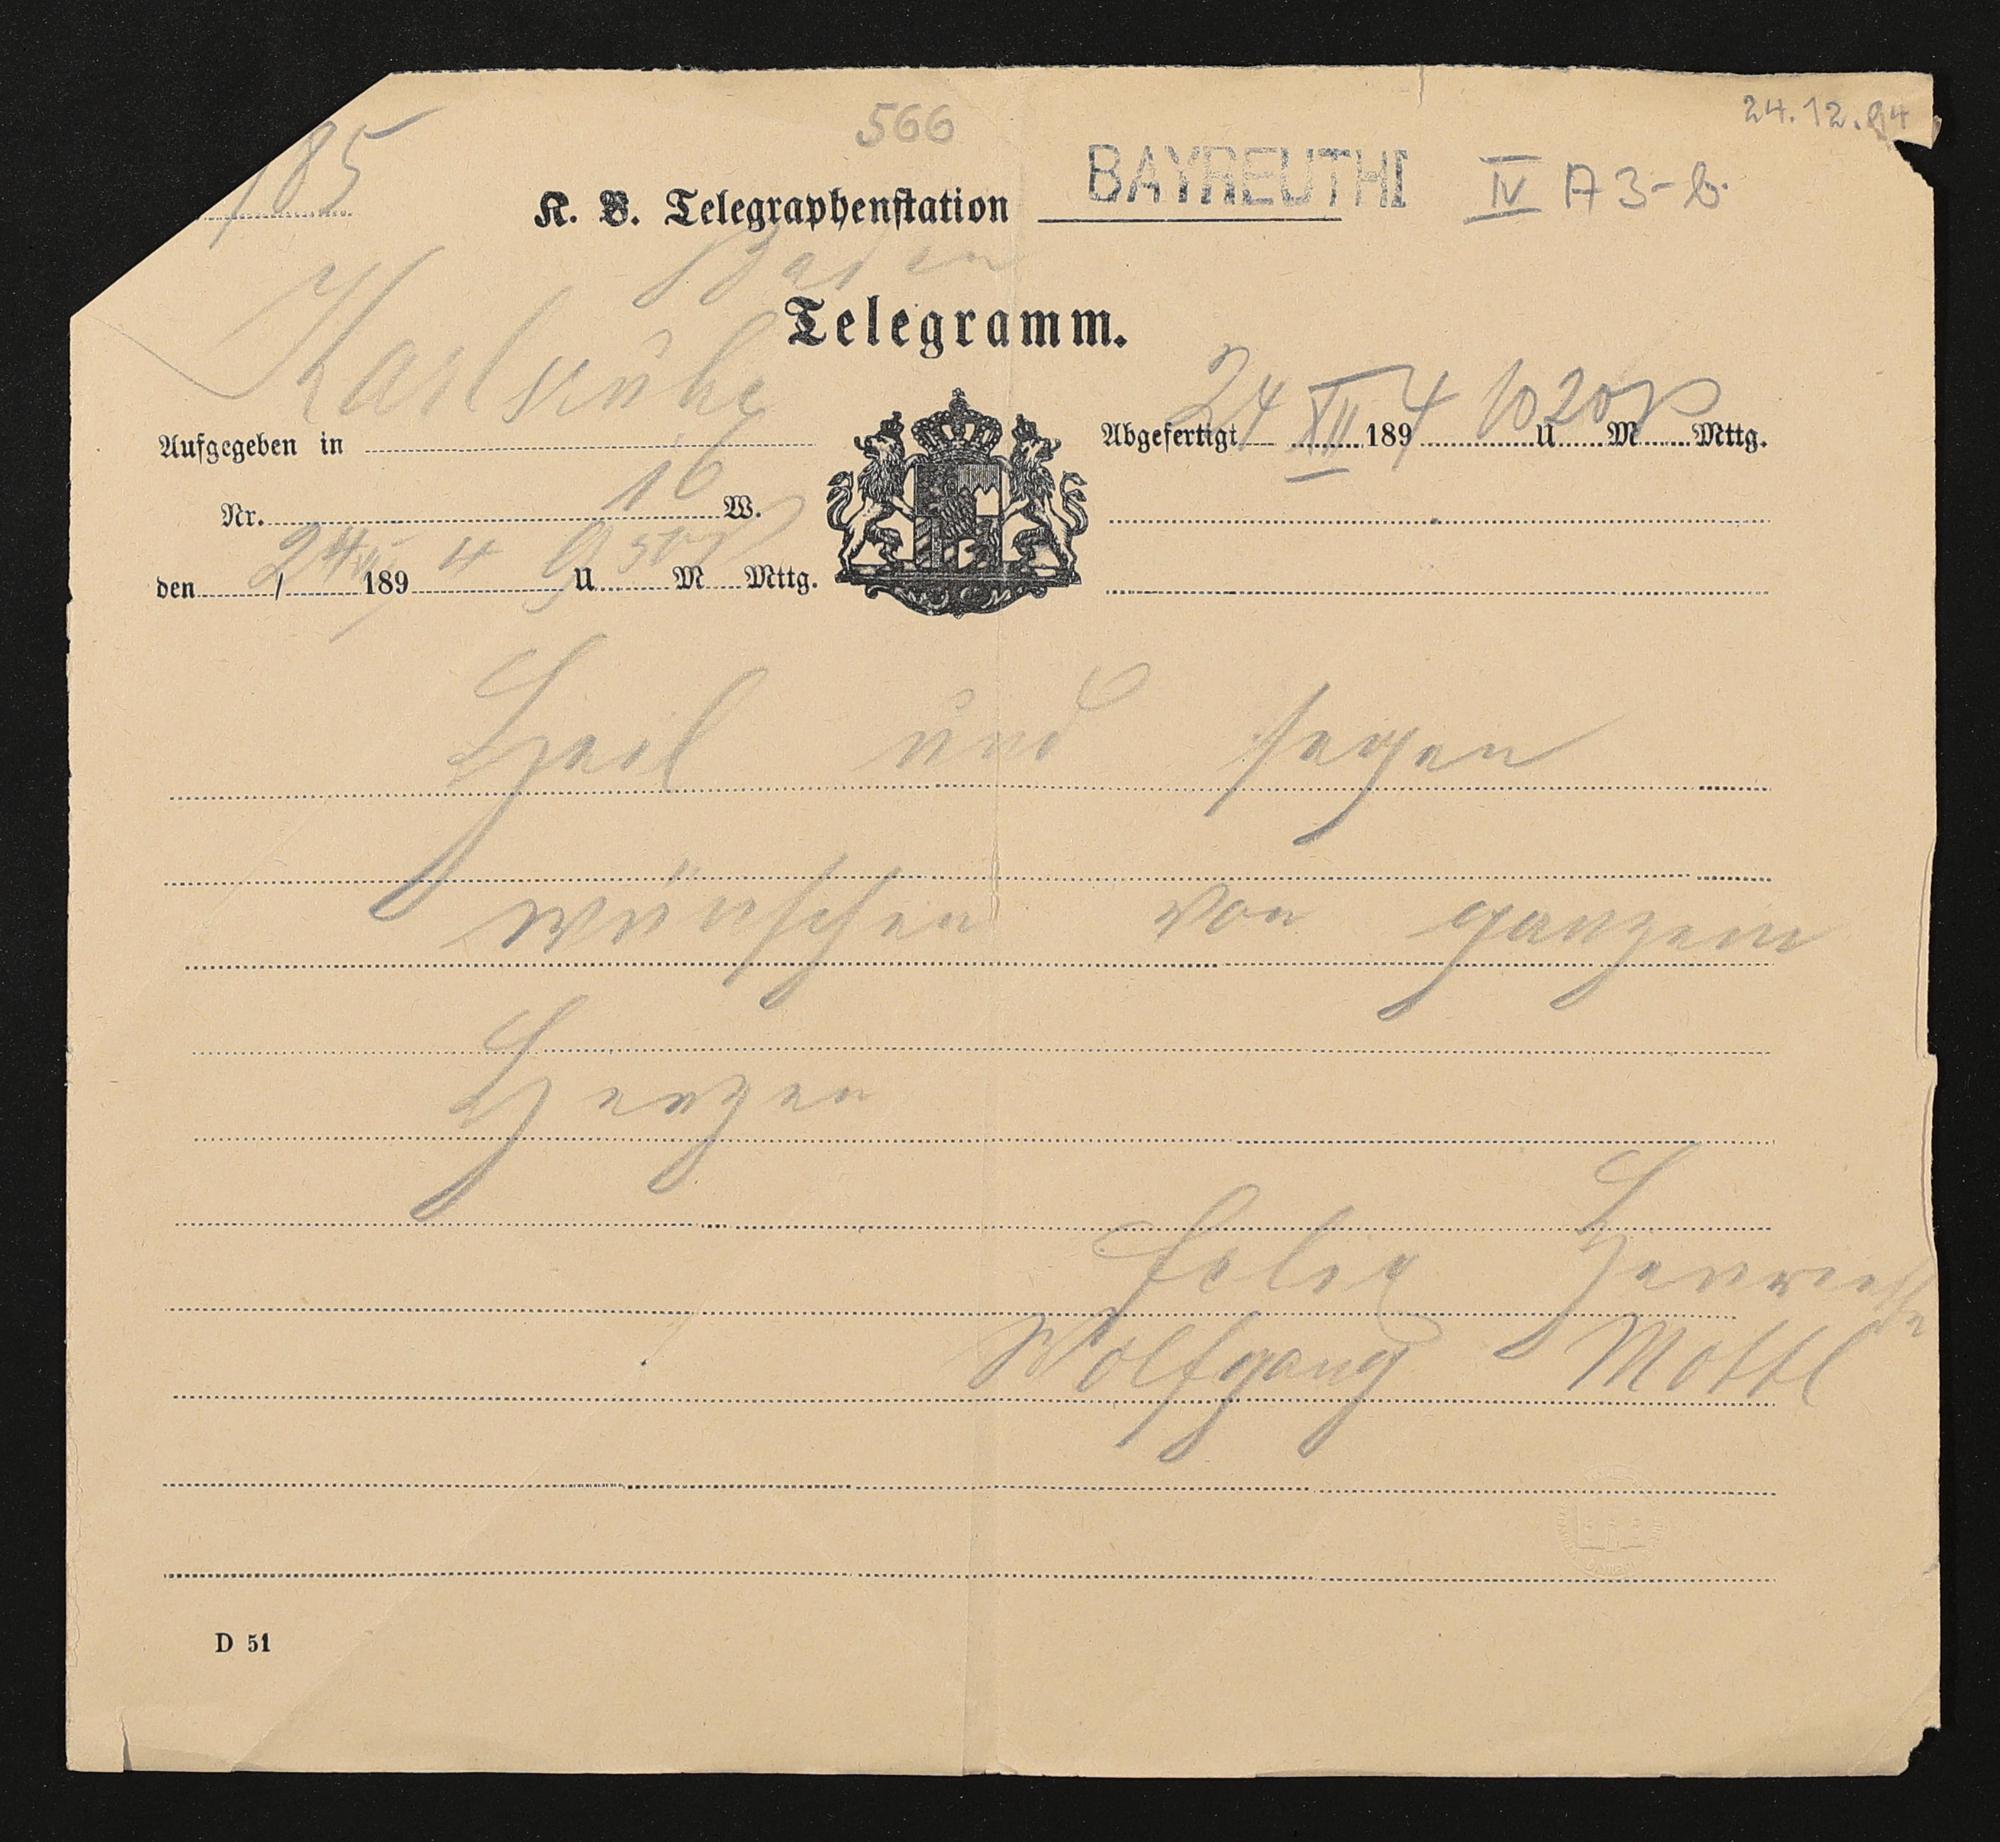 24.12.94
566
185
K. B. Telegraphenstation BAYREUTH I
IV A 3-b.
Baden
Telegramm.
Karlsruhe
Aufgegeben in
Abgefertigt 24 XII 1894 10 U 20 M p Mttg.
Nr. 16 W.
den 24/XII 1894 9 U 50 M p Mttg.
Heil und segen
wünschen von ganzem
Herzen
Felix Henriette
Wolfgang Mottl
D 51